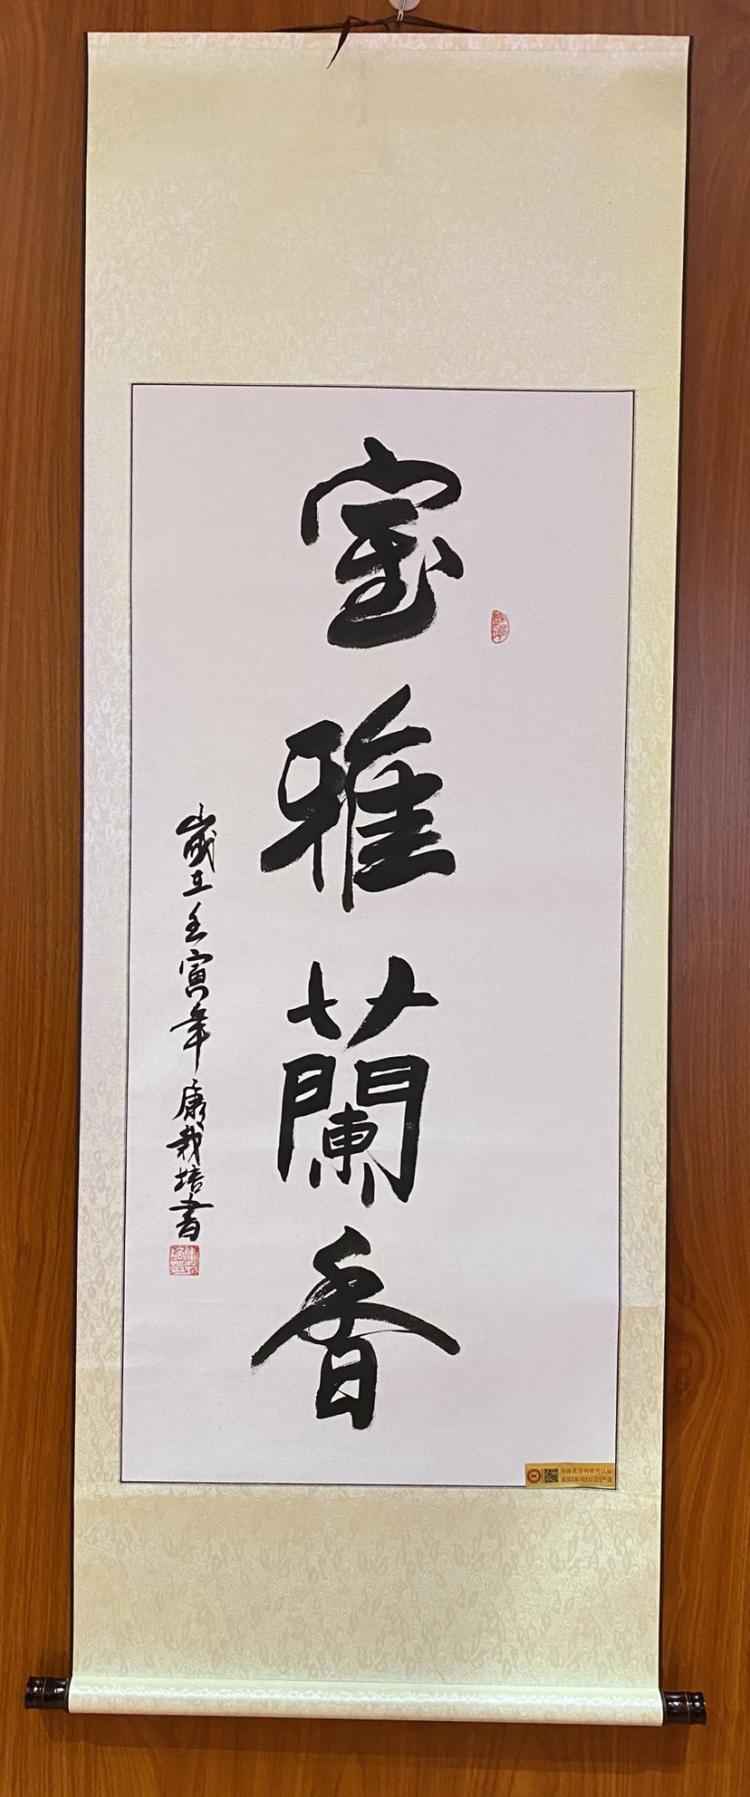 室雅蘭香
歲在壬寅年 康栽培書